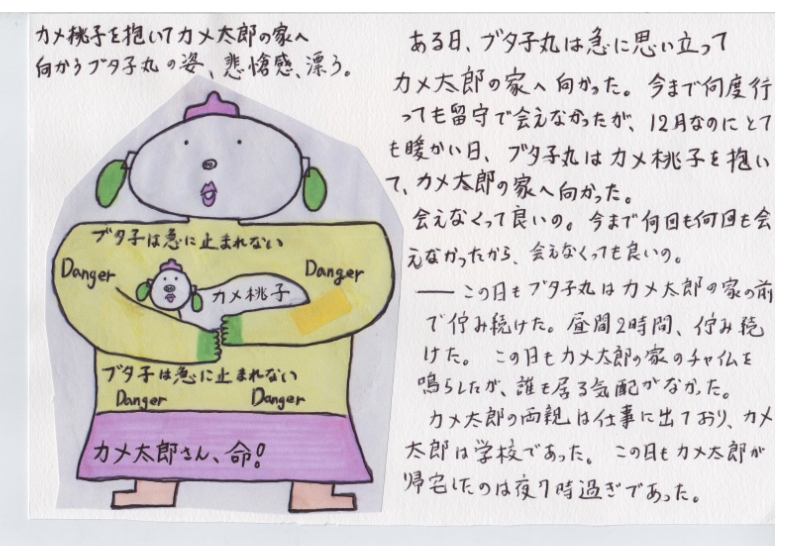 カメ桃子を抱いてカメ太郎の家へ
向かうブタ子丸の姿、悲愴感、漂う。
ブタ子は急に止まれない
Danger
Danger
カメ桃子
ブタ子は急に止まれない
Danger
Danger
カメ太郎さん、命!
ある日、ブタ子丸は急に思い立って
カメ太郎の家へ向かった。今まで何度行
っても留守で会えなかったが、12月なのにとて
も暖かい日、ブタ子丸はカメ桃子を抱い
て、カメ太郎の家へ向かった。
会えなくって良いの。今まで何回も何回も会
えなかったから、会えなくっても良いの。
――この日もブタ子丸はカメ太郎の家の前
で佇み続けた。昼間2時間、佇み続
けた。この日もカメ太郎の家のチャイムを
鳴らしたが、誰も居る気配がなかった。
カメ太郎の両親は仕事に出ており、カメ
太郎は学校であった。この日もカメ太郎が
帰宅したのは夜7時過ぎであった。